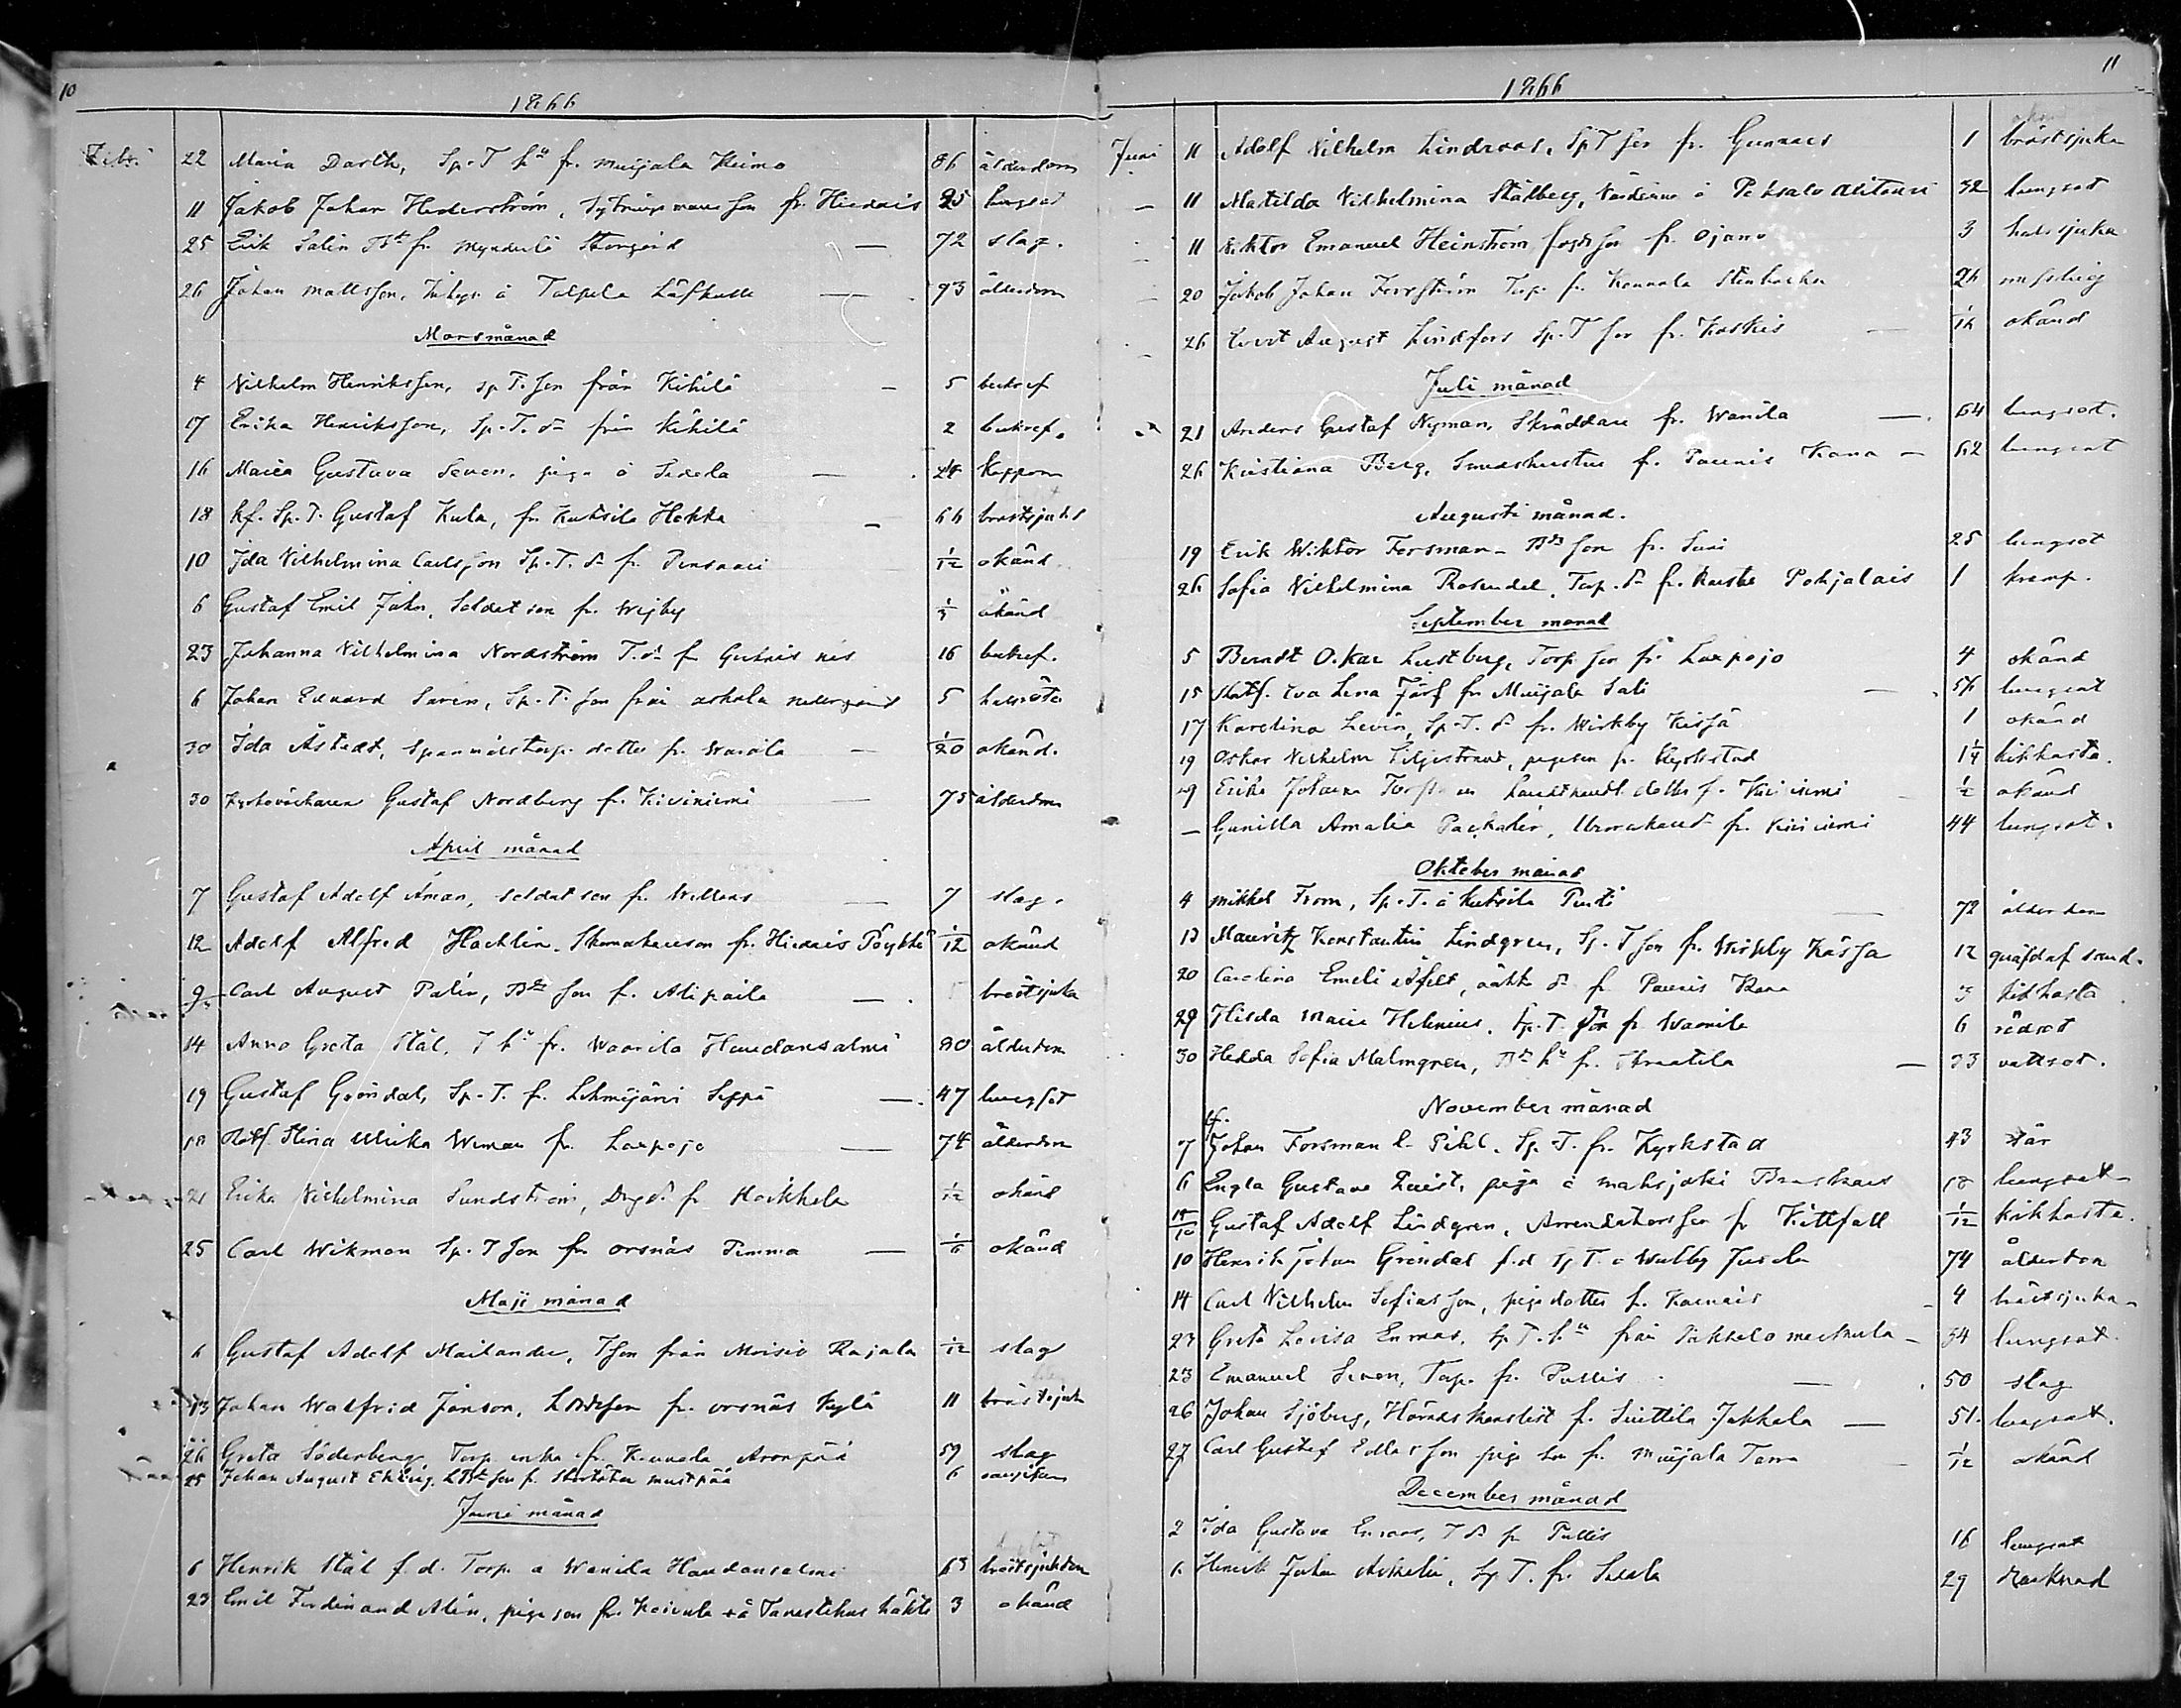 10
1866
Febr. 22 Maria Darth, Sp. T hu fr. Muijala Heimo 86 ålderdom
11 Jakob Johan Hederström, son fr. Hiidais 25 lungsot
25 Erik Salin Bd fr. Storgård — 72 slag.
26 Johan Mattsson, Inhys. å Talpela — 93 ålderdom
Marsmånad
4 Vilhelm Henriksson, sp T. son från Kihilä — 5 bukref
17 Erika Henriksson, Sp. T. dr från Kihilä 2 bukref.
16 Maria Gustava Seven, piga å — 24 koppor
18 kf. Sp. T. Gustaf Kula, fr. Kutsila Hokka — 66 bröstsjukd
10 Ida Vilhelmina Carlsson Sp. T. dr fr. Pensaari 1/12 okänd
6 Gustaf Emil Jahn, Soldat son fr. Wejby 1/3 okänd
23 Johanna Vilhelmina Nordström T. dr fr 16 bukref.
6 Johan Edvard Saren, Sp. T. son från Askola nedergård 5 halsröta
30 Ida Åstedt, dotter fr. Wanila — 1/20 okänd.
30 Kyrkoväktaren Gustaf Nordberg fr. Kiviniemi — 75 ålderdom
April månad
7 Gustaf Adolf Åman, soldat son fr. Willans — 7 slag.
12 Adolf Alfred Hachlin, Skomakareson fr. Hiidais Pöykkö 1/12 okänd
9 Carl August Palin, Bds son fr. Alipaila — bröstsjuka
14 Anna Greta Stål, T hu fr. Waanila Haudansalmi 80 ålderdom
19 Gustaf Gröndal, Sp. T. fr. Lehmijärvi Seppä — 47 lungsot
18 Rotf. Stina Ulrika Wiman fr. Laxpojo — 74 ålderdom
21 Erika Vilhelmina Sundström, Drg dr fr Hoikkala 1/12 okänd
25 Carl Wikman Sp. T son fr. Orsnäs Timma — 1/6 okänd
Maji månad
6 Gustaf Adolf Mailander, T son från Moisio Rajala 1/12 slag
13 Johan Walfrid Jänson, son fr. Orsnäs Kylä 11 bröstsjuk
26 Greta Söderberg Torp. enka fr. Kannala Aronpää 59 slag
25 Johan August Ekling. LBd son fr. Mustpää 6
Juni månad
6 Henrik Stål f.d. Torp. å Wanila Haudansalmi 63 bröstsjukdom
23 Emil Ferdinand Alin, piga son fr. Koivula † å Tavastehus häkte 3 okänd
11
1866
Juni 11 Adolf Vilhelm Lindroos, Sp T son fr. Gunnars 1 bröstsjuka
— 11 Matilda Vilhelmina Stålberg, å Peksalo Alitouri 32 lungsot
11 Viktor Emanuel Heinström son fr. Ojamo 3 halssjuka
20 Jakob Johan Forsström Torp. fr. Kannala Stenbacka 26
26 Evert August Lindfors Sp. T son fr. Koskis — okänd
Juli månad
21 Anders Gustaf Nyman, Skräddare fr. Wanila — 64 lungsot.
26 Kristiana Berg, Smedshustru fr. Paunis Kana — 62 lungsot
Augusti månad.
19 Erik Wiktor Forsman Bds son fr. Suni 25 lungsot
26 Sofia Vilhelmina Rosendal, Torp. dr fr. Pohjalais 1 kramp.
September månad
5 Berndt Oskar Lustberg, Torp son fr Laxpojo 4 okänd
15 Rotf. Eva Lena Järf fr Muijala Sali — 56 lungsot
17 Karolina Levin, Sp. T. dr fr. Wirkby Kissa 1 okänd
19 Oskar Vilhelm Liljestrand, pigeson fr. Kyrkstad 1 1/4 kikhosta.
29 Erika Johanna dotter fr. Kiviniemi 1/2 okänd
— Gunilla Amalia Packalén, fr. Kiviniemi 44 lungsot.
Oktober månad
4 Mikkel From, Sp. T. å Kutsila Pusti — 72 ålderdom
13 Mauritz Konstantin Lindgren, Sp. T son fr. Wirkby Kässa 12 qväfd af sand.
20 Carolina Emeli dr fr Paunis Kana 3 kikhosta
29 Hilda Maria Helenius, Sp. T. dr fr. Waanila 6 rödsot
30 Hedda Sofia Malmgren, Bds hu fr. Hraatila — 33 vattsot.
November månad
7 kf. Johan Forsman l. Pihl. Sp. T. fr. Kyrkstad 43 sår
6 Engla Gustava Quist, piga å Maksjoki Braskars 18 lungsot
Gustaf Adolf Lindgren, Arrendators son fr Kittfall 1/12 kikhosta.
10 Henrik Johan Gröndal f.d Sp T. å Jusola 74 ålderdom
14 Carl Vilhelm Sofiasson, piga dotter fr. Karnais — 4 bröstsjuka
23 Greta Lovisa Enroos, Sp T. hu från — 34 lungsot.
23 Emanuel Seven, Torp. fr. Pullis — 50 slag
26 Johan Sjöberg, Häradskanslist fr. Suittila Jakkala — 51. lungsot.
27 Carl Gustaf Edlasson piga son fr. Muijala Tarra 1/12 okänd
December månad
2 Ida Gustava Enroos, T dr fr Pullis 16 lungsot
6 Henrik Johan Askolin, Sp T. fr. 29